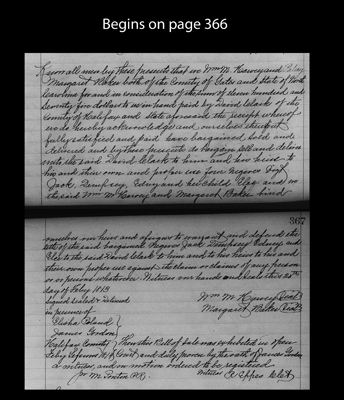 Begins on page 366
Know all men by these presents that we Wm M. Harvey and
Margaret Baker both of the County of and State of North
Carolina for and in consideration of the sum of eleven hundred and
Seventy five dollars to us in hand paid by David Clark of the
County of Halifax and State aforesaid the receipt whereof
we do hereby acknowledge and ourselves therewith
fully satisfied and paid have bargained sold and
delivered and by these presents do bargain sell and deliver
unto the said David Clark to him and his heirs to
his and their own and proper use four Negroes
Jack, Dempsey, Edney and her child and we
the said Wm M Harvey and Margaret Baker bind
367
ourselves our heirs and assigns to warrant and defend the
title of the said bargained Negroes Jack Dempsey Edney and
to the said David Clark to him and to his heirs to his and
their own proper use against the claim or claims of any person
or persons whatsoever. Witness our hands and seals this
day of Feby 1813
Signed sealed & delivered
in presence of
Wm M. Harvey (Seal)
Margaret Baker (Seal)
Elisha
James Gordon
Halifax County } Then this Bill of sale was exhibited in open
Court and duly proven by the oath of James
a witness, and on motion ordered to be registered
Witness